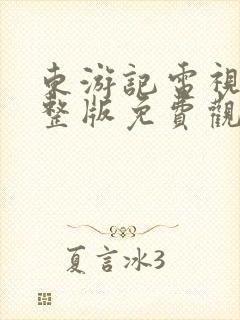 東游記電視
整版免費觀
夏言冰3